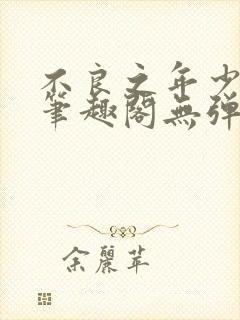 不良之年少
筆趣閣無彈
余麗苹